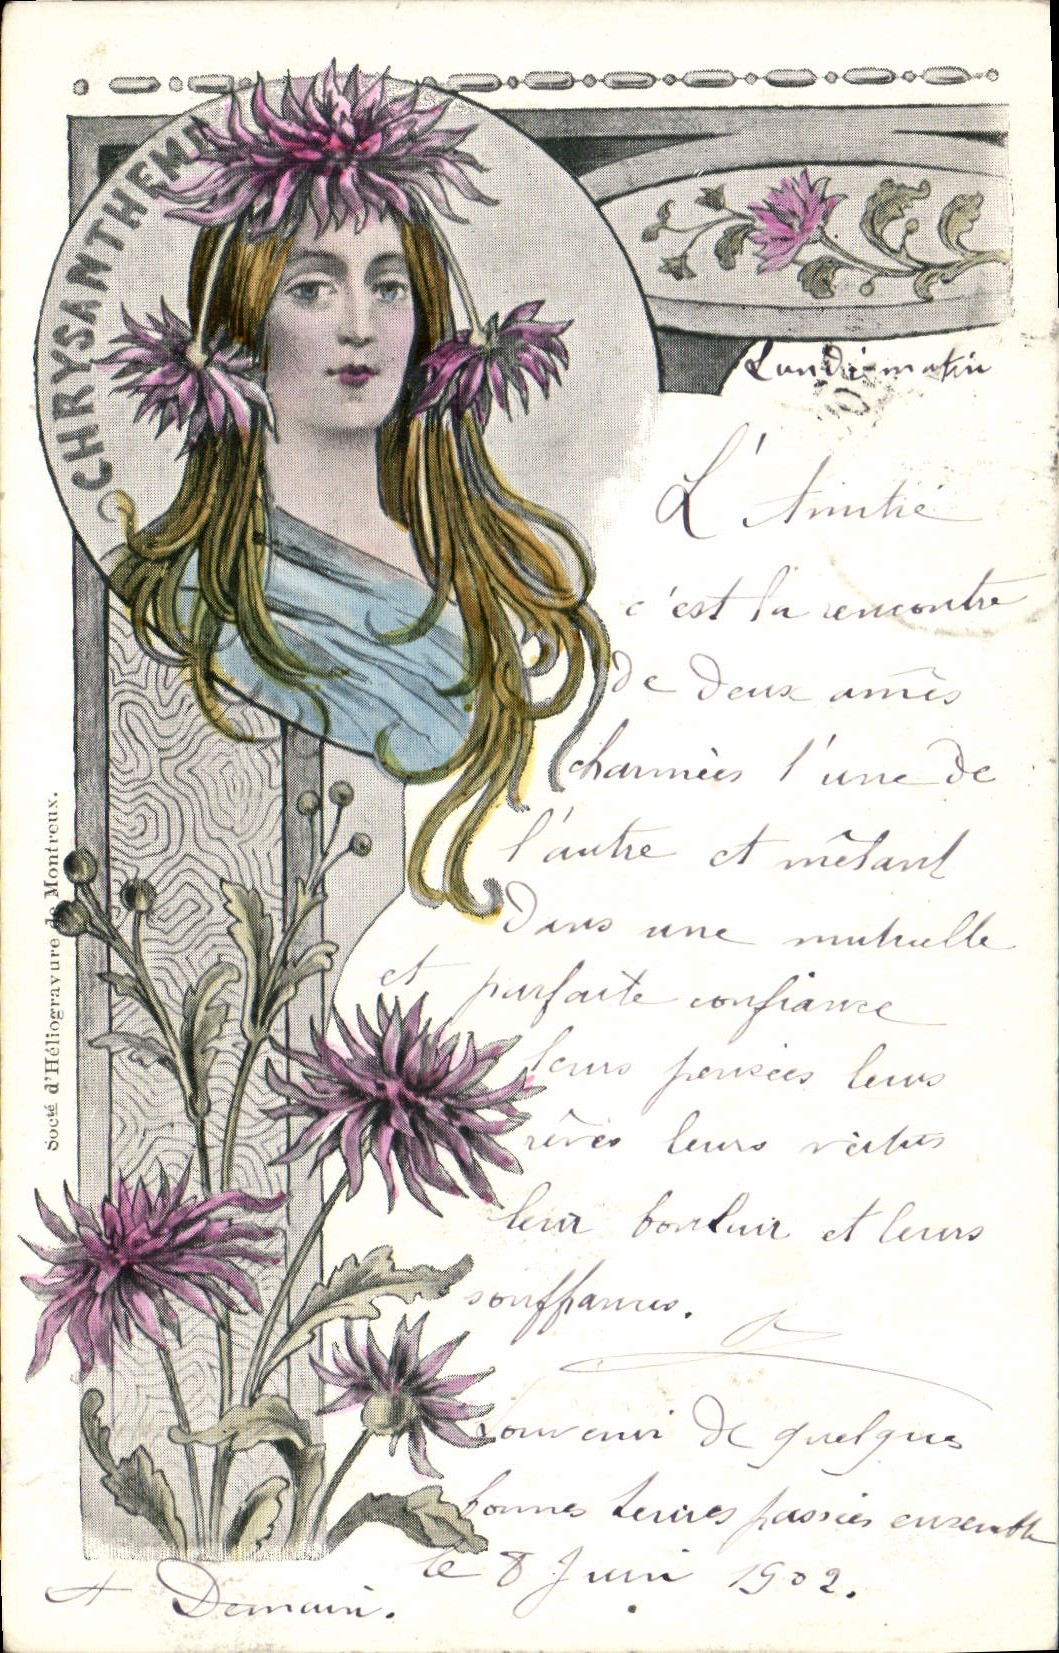 CHRYSANTHEME
Lundi-matin
L'Amitié
c'est la rencontre
de deux amês
charmées l'une de
l'autre et mêlant
dans une mutuelle
et parfaite confiance
leurs pensées leurs
rêves leurs vertus
leur bonheur et leurs
souffrances.
Souvenir de quelques
bonnes heures passées ensemble
le 8 Juin 1902.
A Demain.
Socté d'Héliogravure de Montreux.